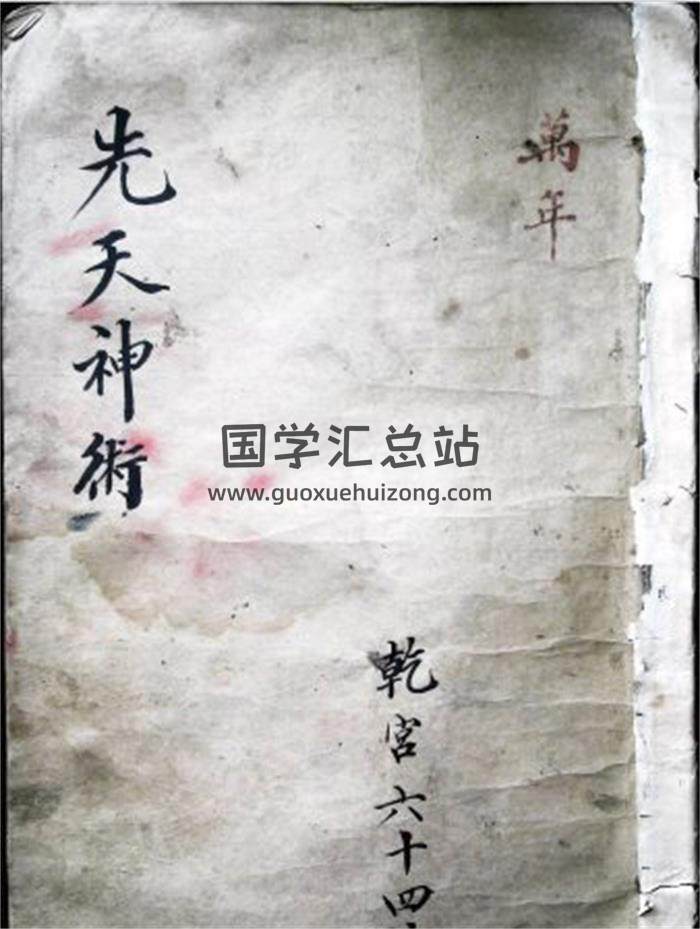 萬年
先天神術
国学汇总站
www.guoxuehuizong.com
乾宮六十四